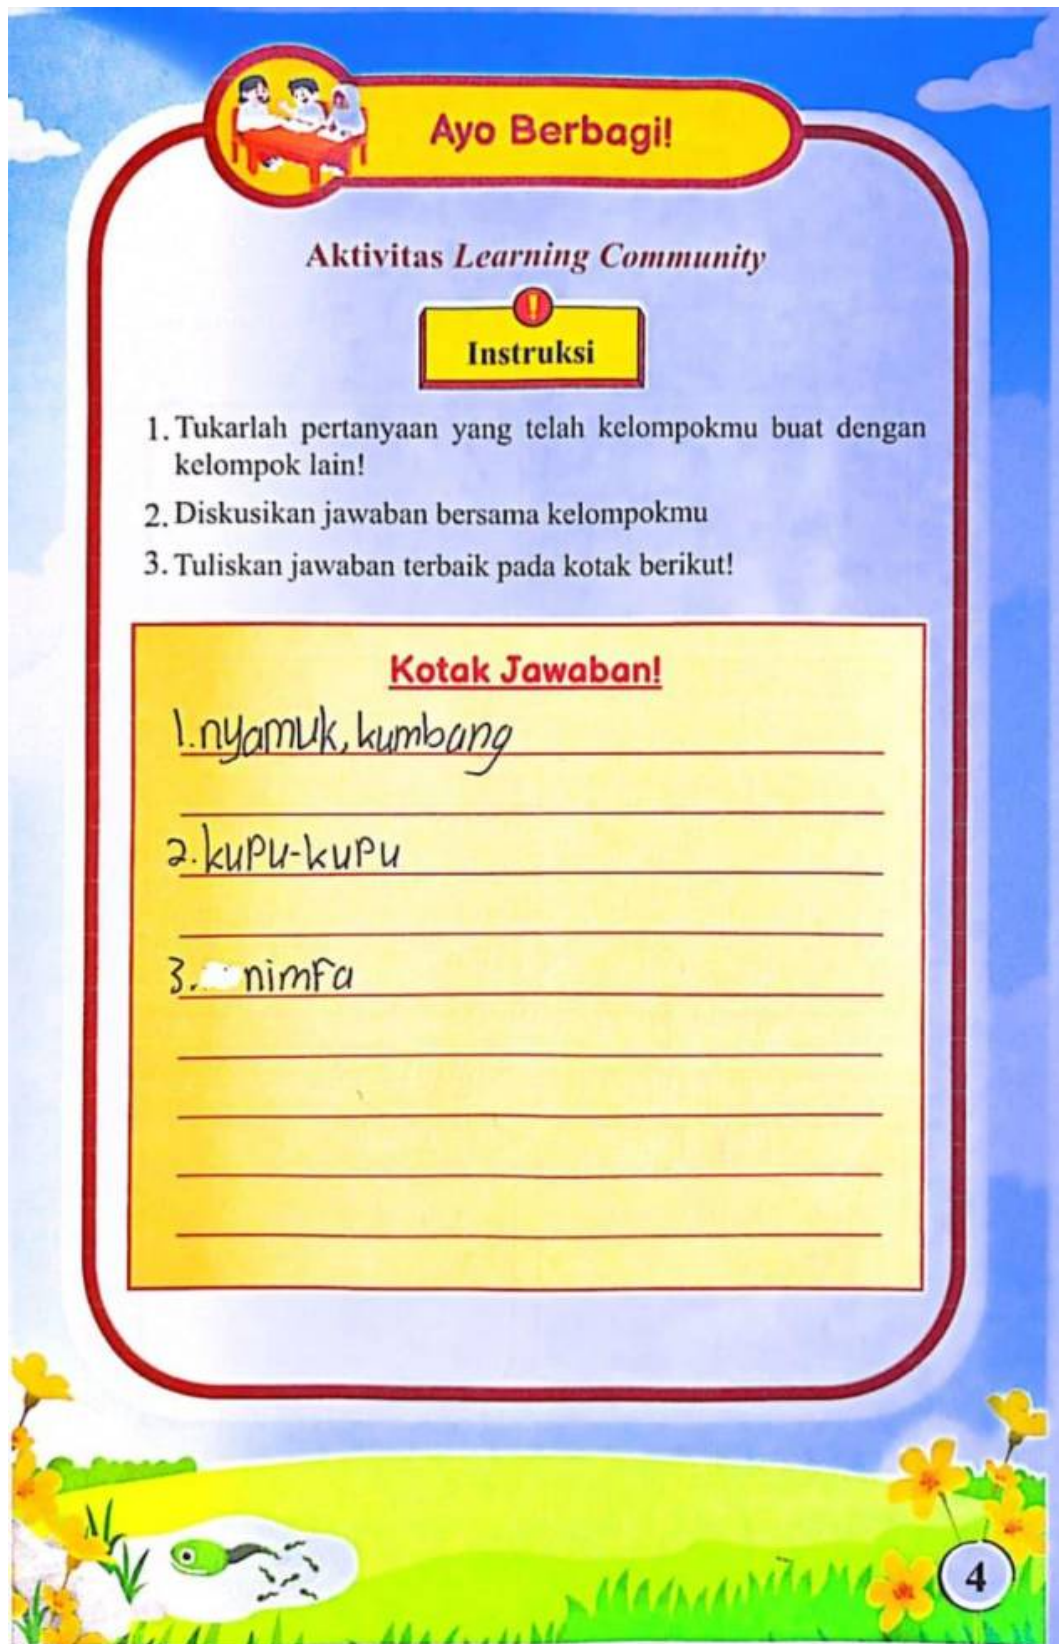 Ayo Berbagi!
Aktivitas Learning Community
!
Instruksi
1. Tukarlah pertanyaan yang telah kelompokmu buat dengan
kelompok lain!
2. Diskusikan jawaban bersama kelompokmu
3. Tuliskan jawaban terbaik pada kotak berikut!
Kotak Jawaban!
1. nyamuk, kumbang
2. kupu-kupu
3. nimfa
4